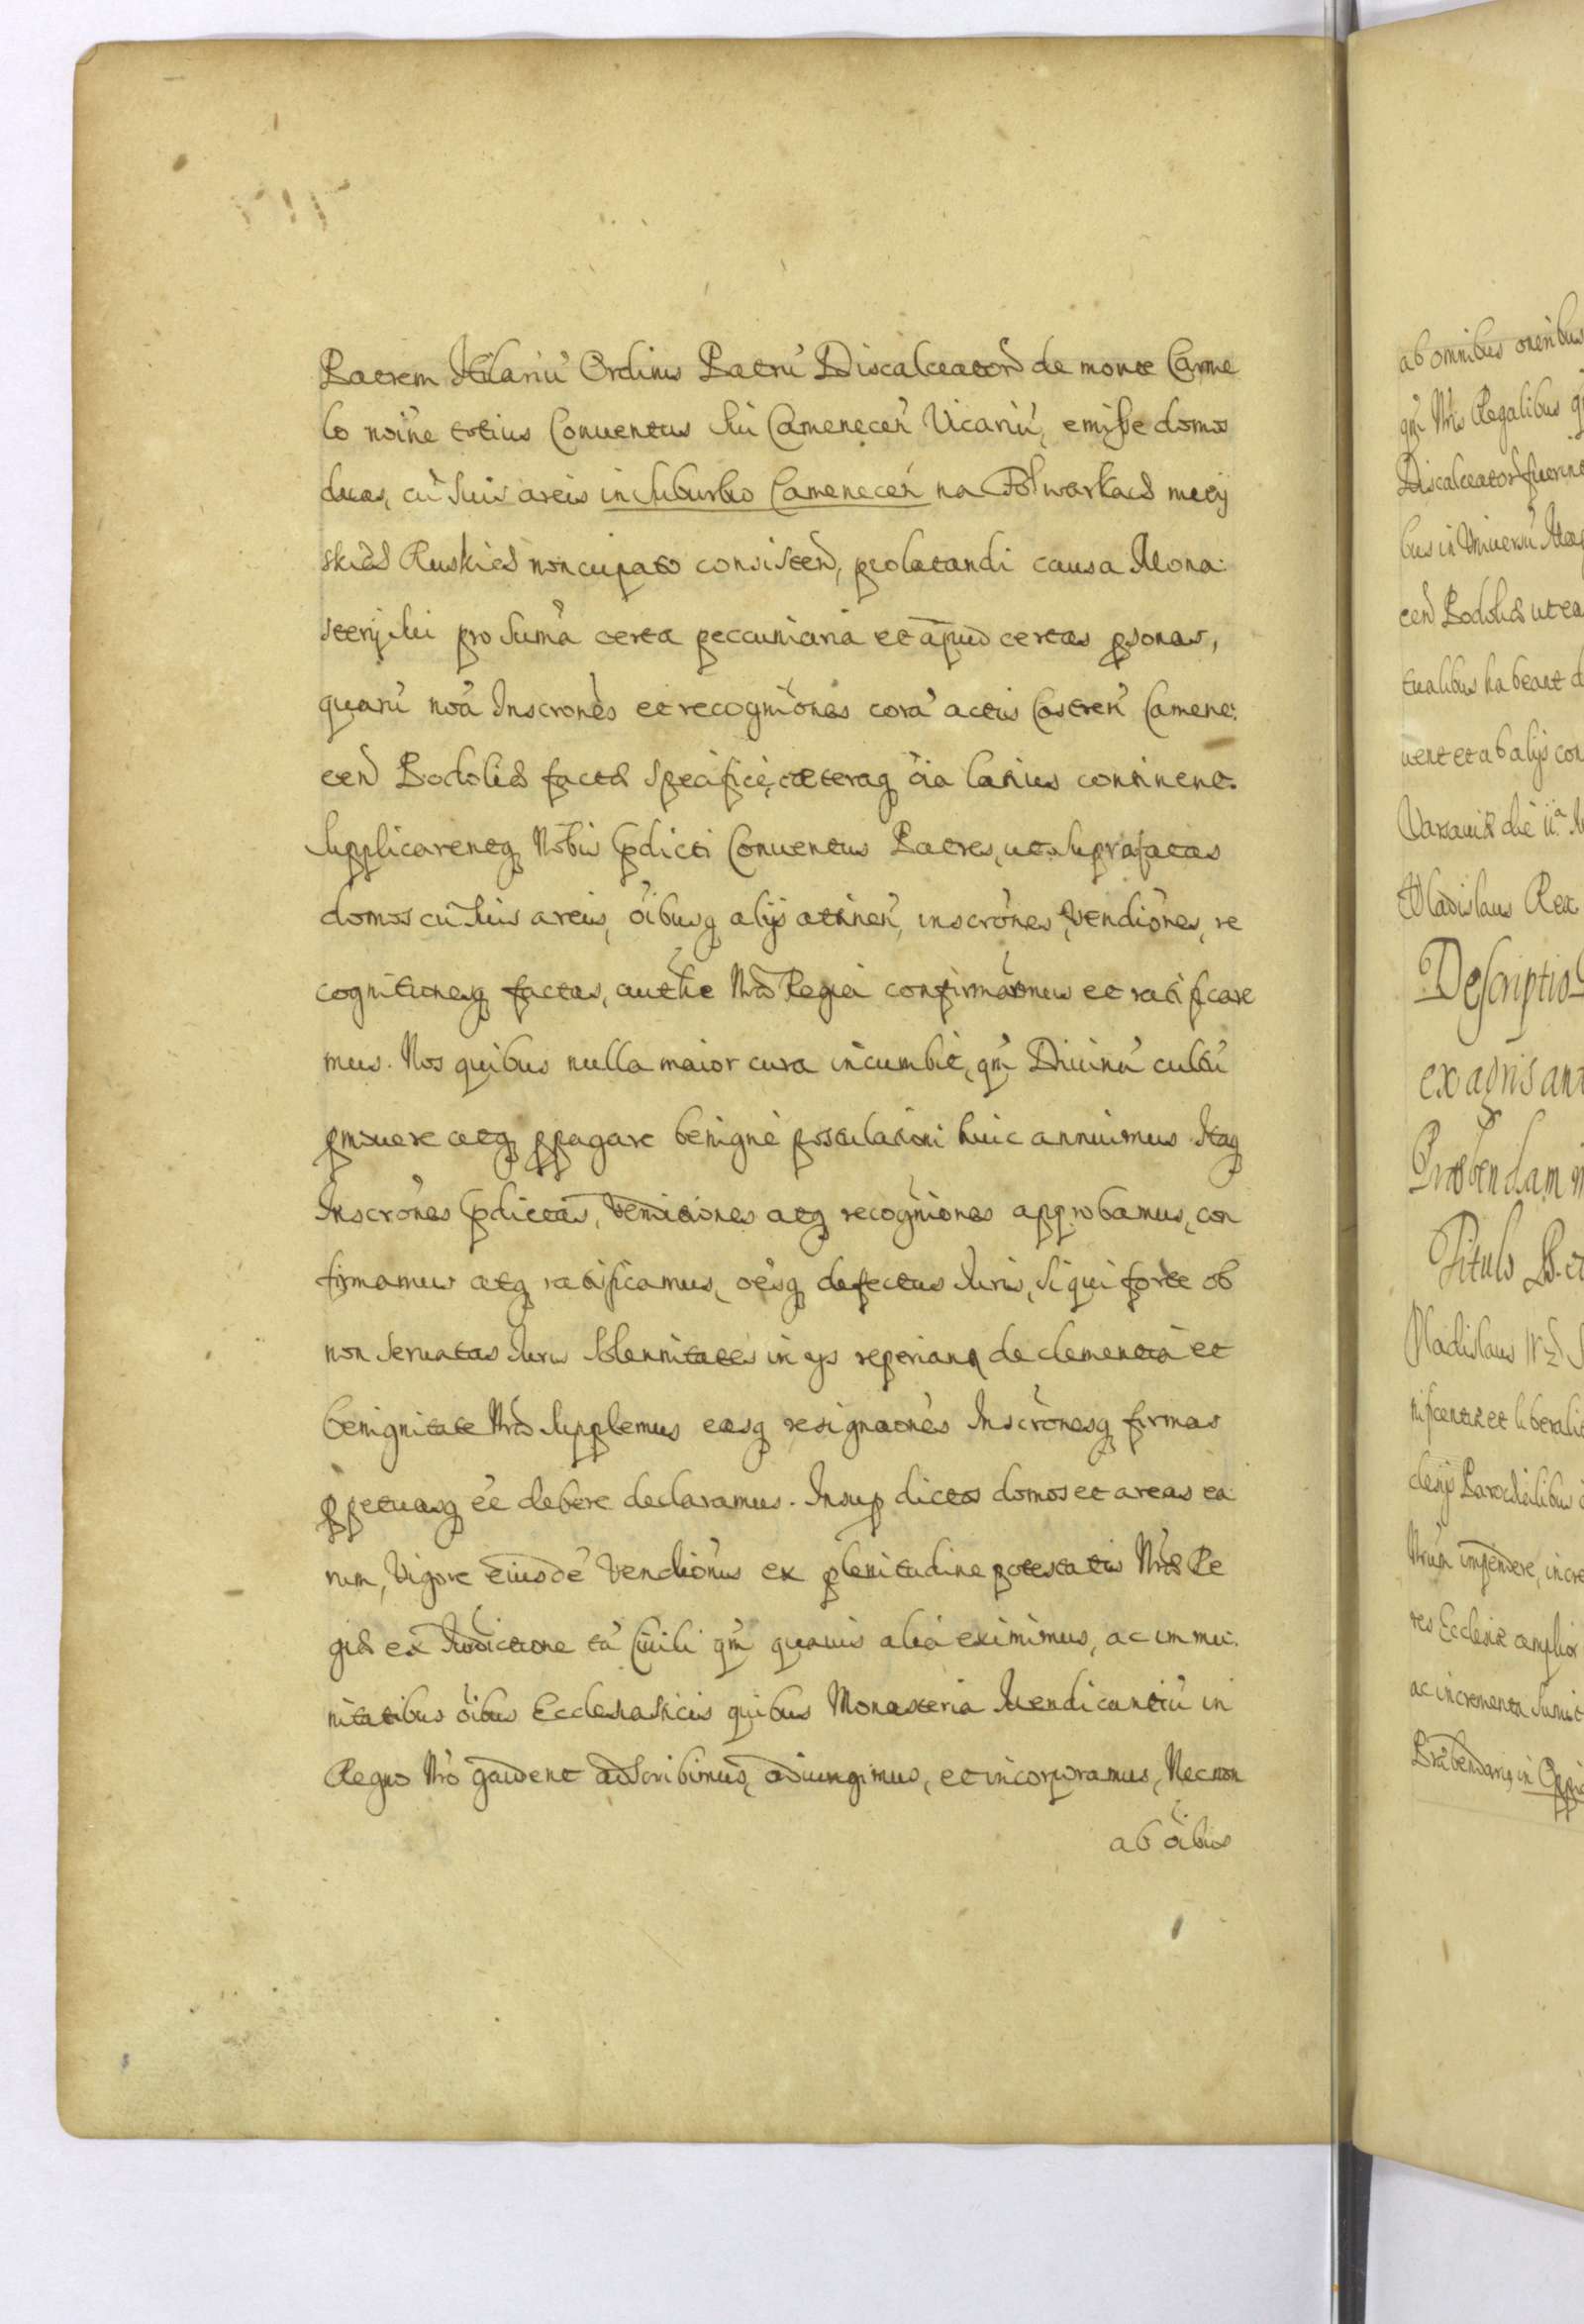 Patrem Hilariu Ordinis Patru Discalceator de monte Carme
lo noi͂ne totius Conuentus sui Camenecen̄ Vicariu͂, emisse domos
duas, cu͂ suis areis in suburbio Camenecen̄ na Folwarkach mieÿ
skich Ruskich noncupato consisten, prolatandi causa Mona:
sterÿ sui pro suma͂ certa peccuniaria et apud certas psonas,
quaru͂ noa͂ Inscrones et recogniones cora͂ actis Castren̄ Camene:
cen Podoliæ factæ specifice, cæteraq oi͂a latius continent.
Supplicarentq Nobis pdicti Conuentus Patres, ut suprafatas
domos cu͂ suis areis, oi͂busq alÿs attinen̄, inscrones, Vendiones, re
cognitionesq factas, authte Nra Regia confirmaremus et ratificare
mus. Nos quibus nulla maior cura incumbit, qm͂ Diuinu͂ cultu͂
pmouere atq ppagare benigne postulationi huic annuimus Itaq
Inscrones pdictas, Venditiones atq recogniones approbamus, con
firmamus atq ratificamus, oe͂sq defectus Iuris, si qui forte ob
non seruatas Iuris solennitates in eÿs reperianr de clementia et
benignitate Nra supplemus easq resignaones Inscronesq firmas
ppetuasq e͂e debere declaramus. Insup dictas domos et areas ea
rum, Vigore eiusde͂ Vendionis ex plenitudine potestatis Nræ Re
giæ ex Iurdictione ta͂ Ciuili qm͂ quauis alia eximimus, ac immu:
nitatibus oi͂bus Ecclesiasticis quibus Monasteria Mendicantiu͂ in
Regno Nro gaudent adscribimus, adiungimus, et incorporamus, Necnon
ab oi͂bus
ab omnibus oneribus
qm͂ Nris Regalibus
Discalceator fuerint
bus in Vniuersu͂
cen Podoliæ ut ea
tualibus habeant
uent et ab alÿs con
Varsauiæ die
Vladislaus Rex
Descriptio
ex agris
Præbendam
Titulo
Vladislaus IV
nificentiæ et liberali
clesÿs Parochialibus
Nrum impendere, incre
res Ecclesiæ amplior
ac incrementa sumit
Præbendarÿs in